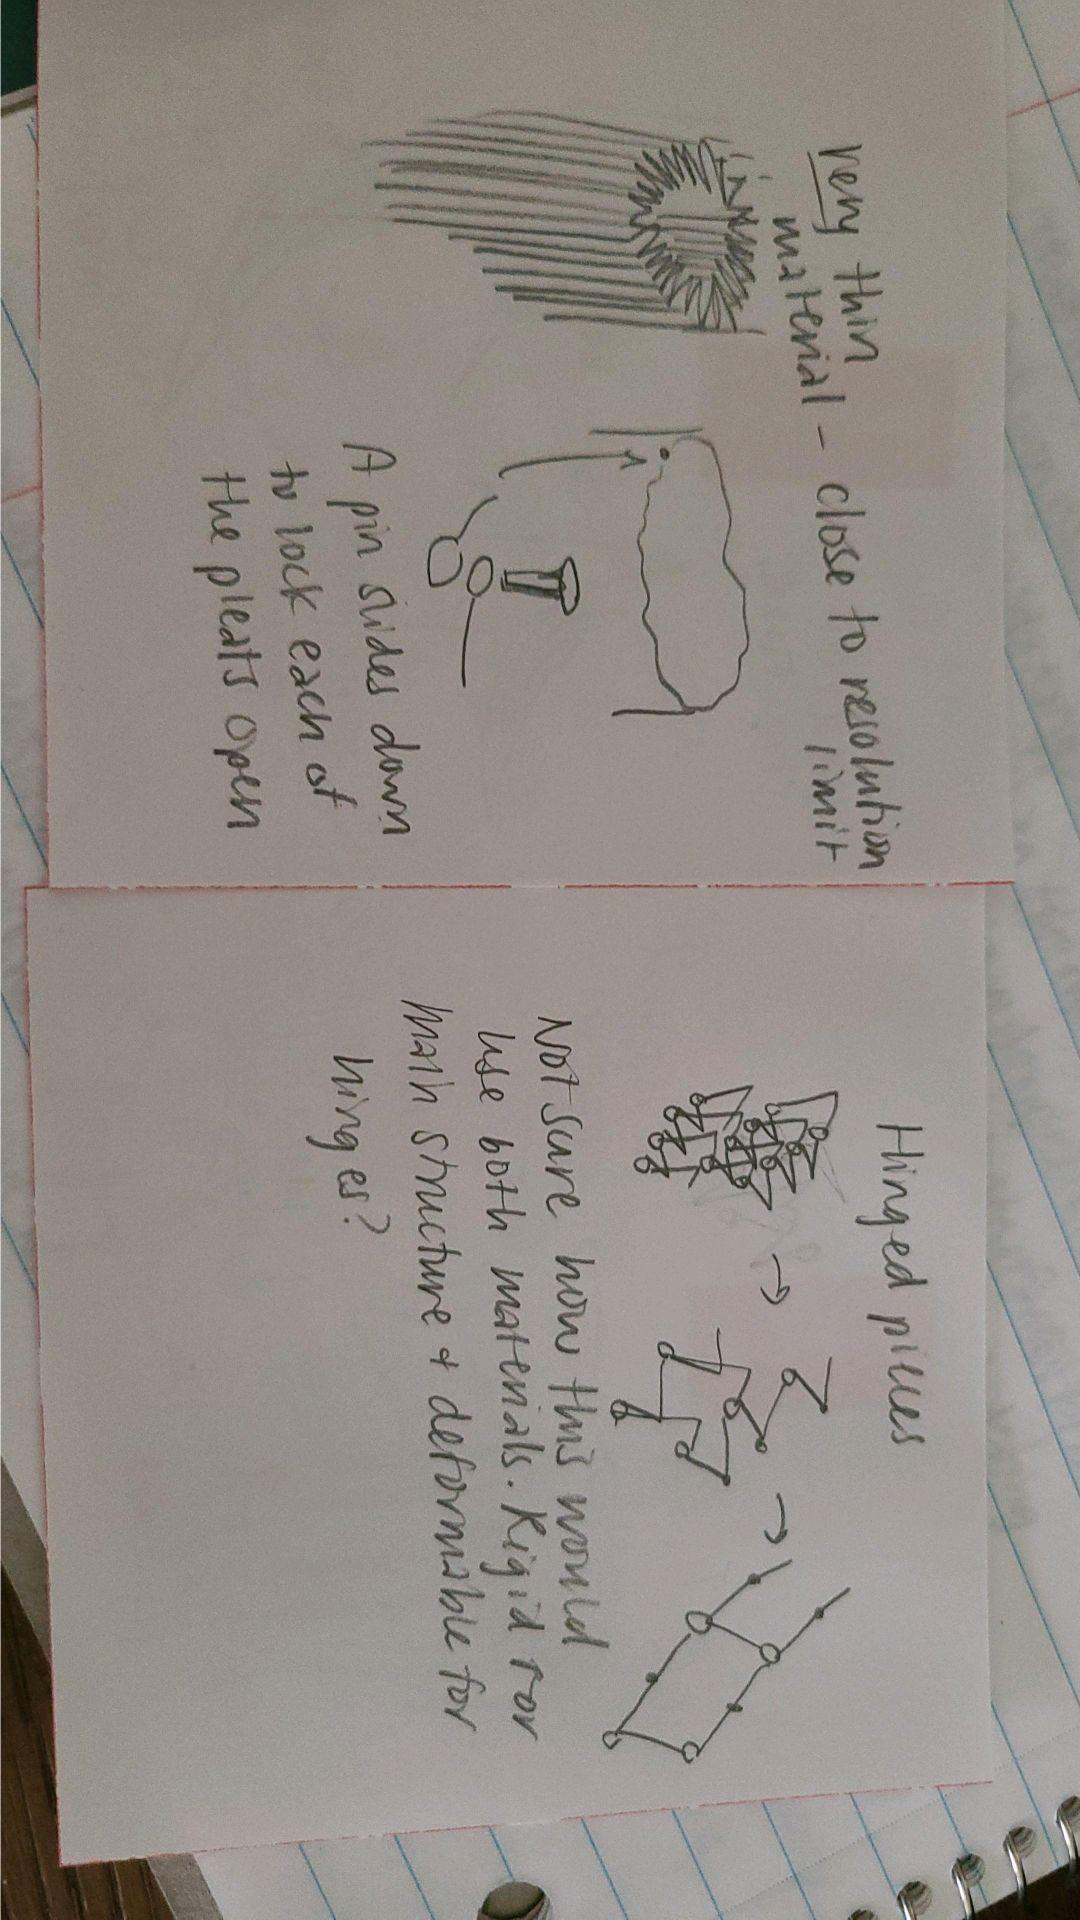 very thin
material - close to resolution
limit
A pin slides down
to lock each of
the pleats open
Hinged pieces
Not sure how this would
use both materials. Rigid for
main structure + deformable for
hinges?